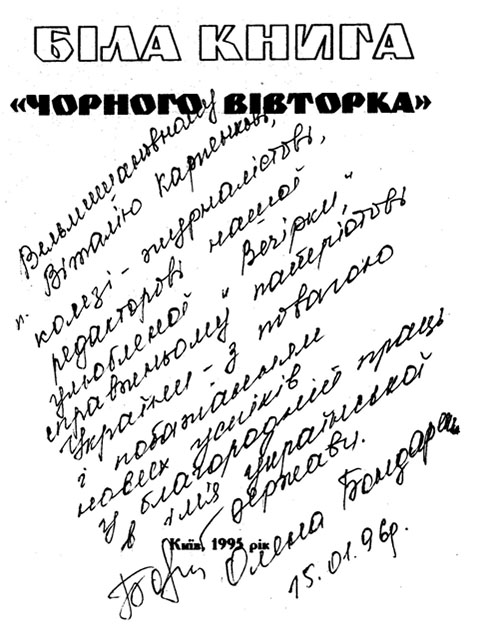 БІЛА КНИГА
«ЧОРНОГО ВІВТОРКА»
Вельмишановному
п. Віталію Карпенкові,
колезі - журналістові,
редакторові нашої
улюбленої "Вечірки",
справжньому патріотові
України - з повагою
і побажаннями
нових успіхів
у благородній праці
в ім'я української
держави.
Київ, 1995 рік
Олена Бондаренко
15.01.96р.